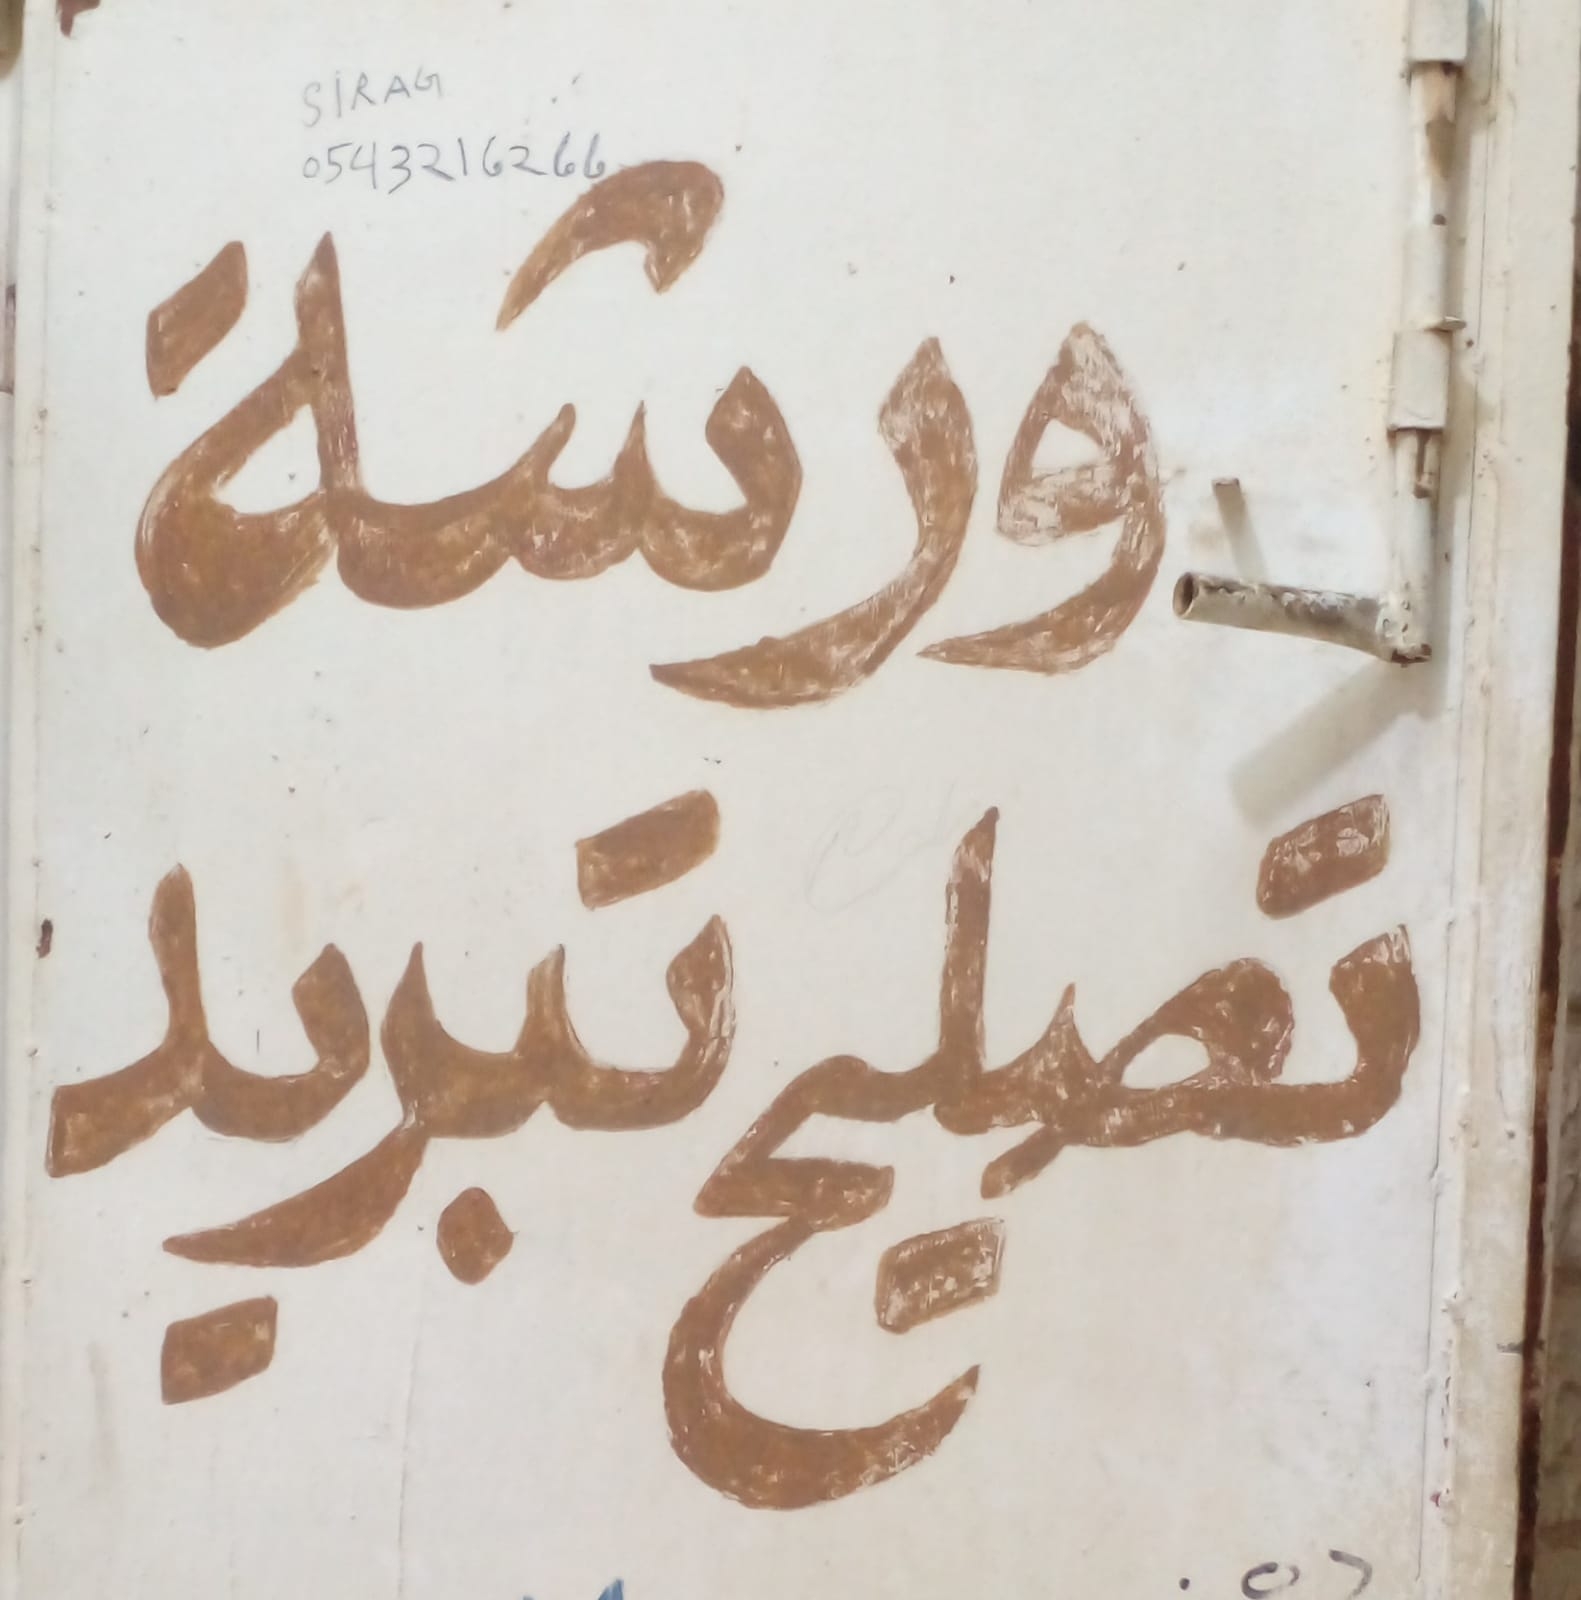 SIRAG
0543216266
ورشة
تصليح تبريد